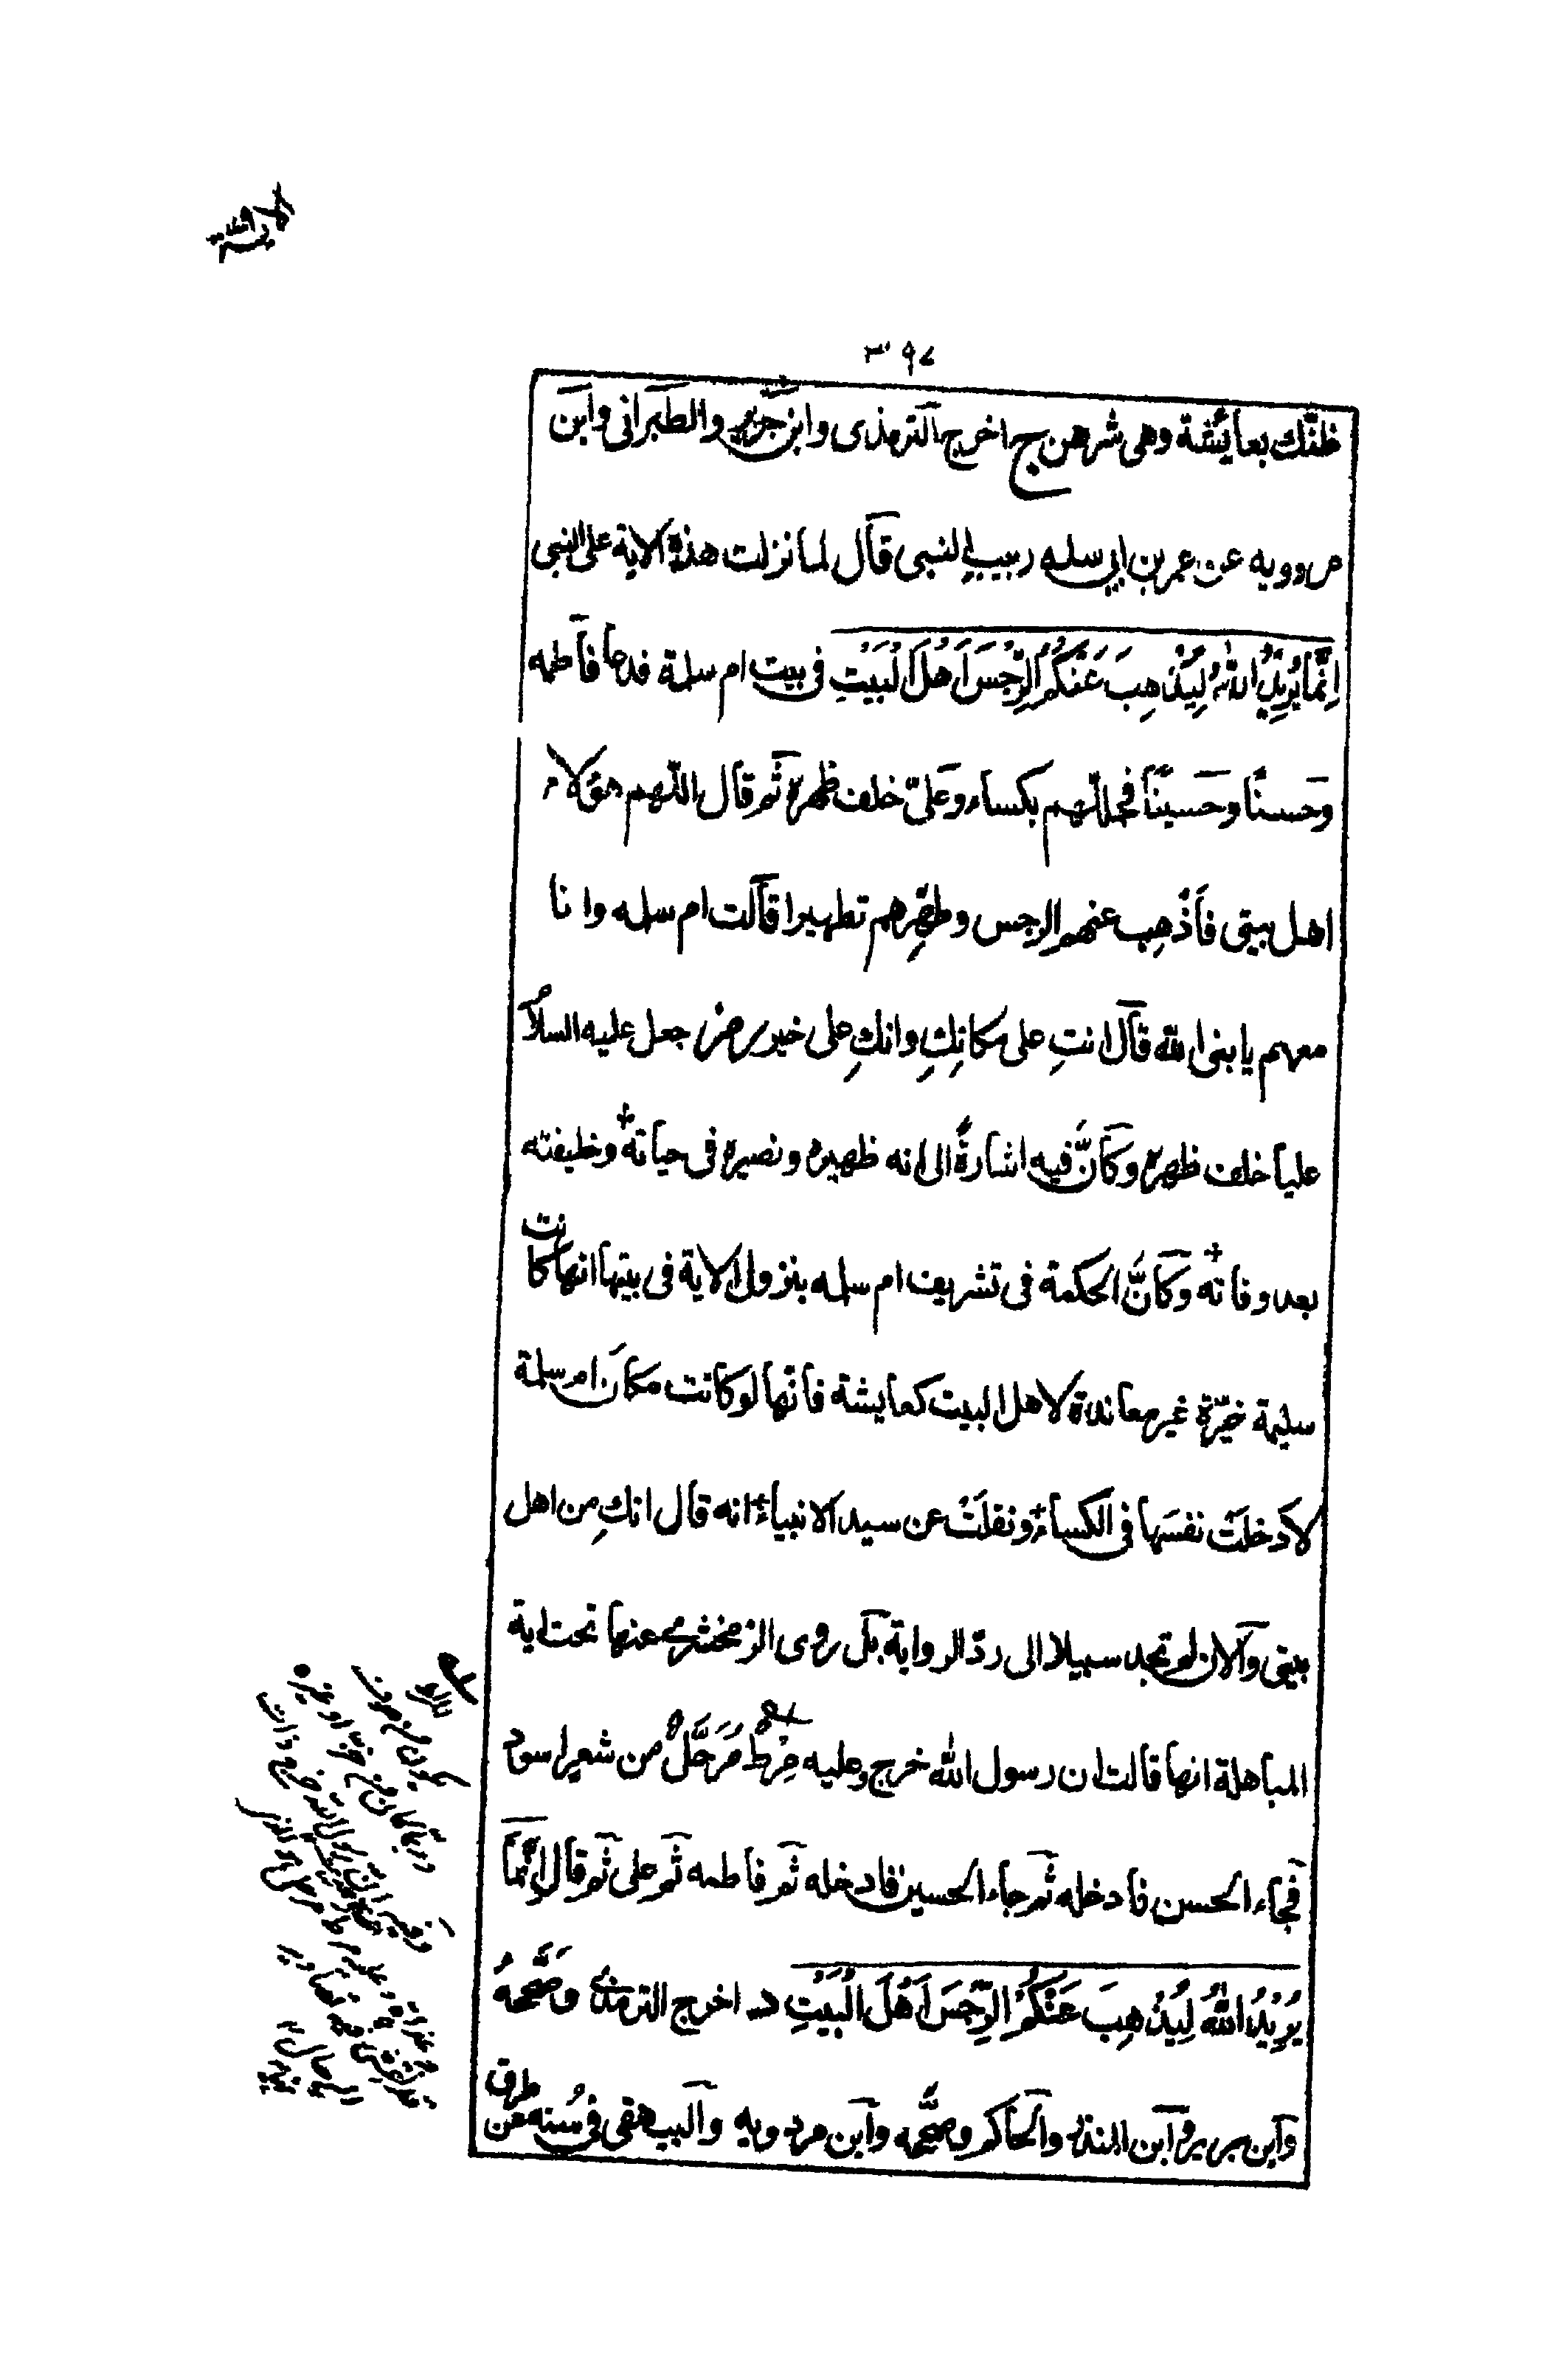 ٣٩٧
ظنّك بعائشة وهى شرهن ج اخرج الترمذى وابن جرير والطبرانى وابن
مردويه عن عمر بن ابي سلمه ربيب النبى قال لما نزلت هذه الاية على النبى
اِنَّمَا يُرِيْدُ اللّٰهُ لِيُذْهِبَ عَنْكُمُ الرِّجْسَ اَهْلَ الْبَيْتِ فى بيت ام سلمة فدعا فاطمه
وحسنًا وحسينًا فجللّهم بكساء وعلىّ خلف ظهره ثم قال اللّهم هؤلاء
اهل بيتى فأذْهِب عنهم الرجس وطهِّرهم تطهيرا قالت ام سلمه وانا
معهم يا بنى الله قال انتِ على مكانِكِ وانكِ على خير جعل عليه السلام
عليا خلف ظهره وكأنّ فيه اشارةً الى انه ظهيره ونصيره فى حياته وخليفته
بعد وفاته وكأنَّ الحكمة فى تشريف ام سلمه بنزول الاية فى بيتها انها كانت
سليمة خيّرة غير معاندة لاهل البيت كعايشة فانّها لو كانت مكان ام سلمة
لادخلَتْ نفسَها فى الكساء ونقلَتْ عن سيد الانبياء انه قال انكِ من اهل
بيتى والان لم تجد سبيلا الى ردّ الرواية بل روى الزمخشرى عنها تحت اية
المباهلة انها قالت ان رسول الله خرج وعليه مِرْطٌ مُرَحَّلٌ من شعر اسود
فجاء الحسن فادخله ثم جاء الحسين فادخله ثم فاطمه ثم على ثم قال اِنَّمَا
يُرِيْدُ اللّٰهُ لِيُذْهِبَ عَنْكُمُ الرِّجْسَ اَهْلَ الْبَيْتِ د اخرج الترمذى وصَحَّحهُ
وابن جرير وابن المنذر والحاكم وصحّحه وابن مردويه والبيهقى فى سُننه من طرق